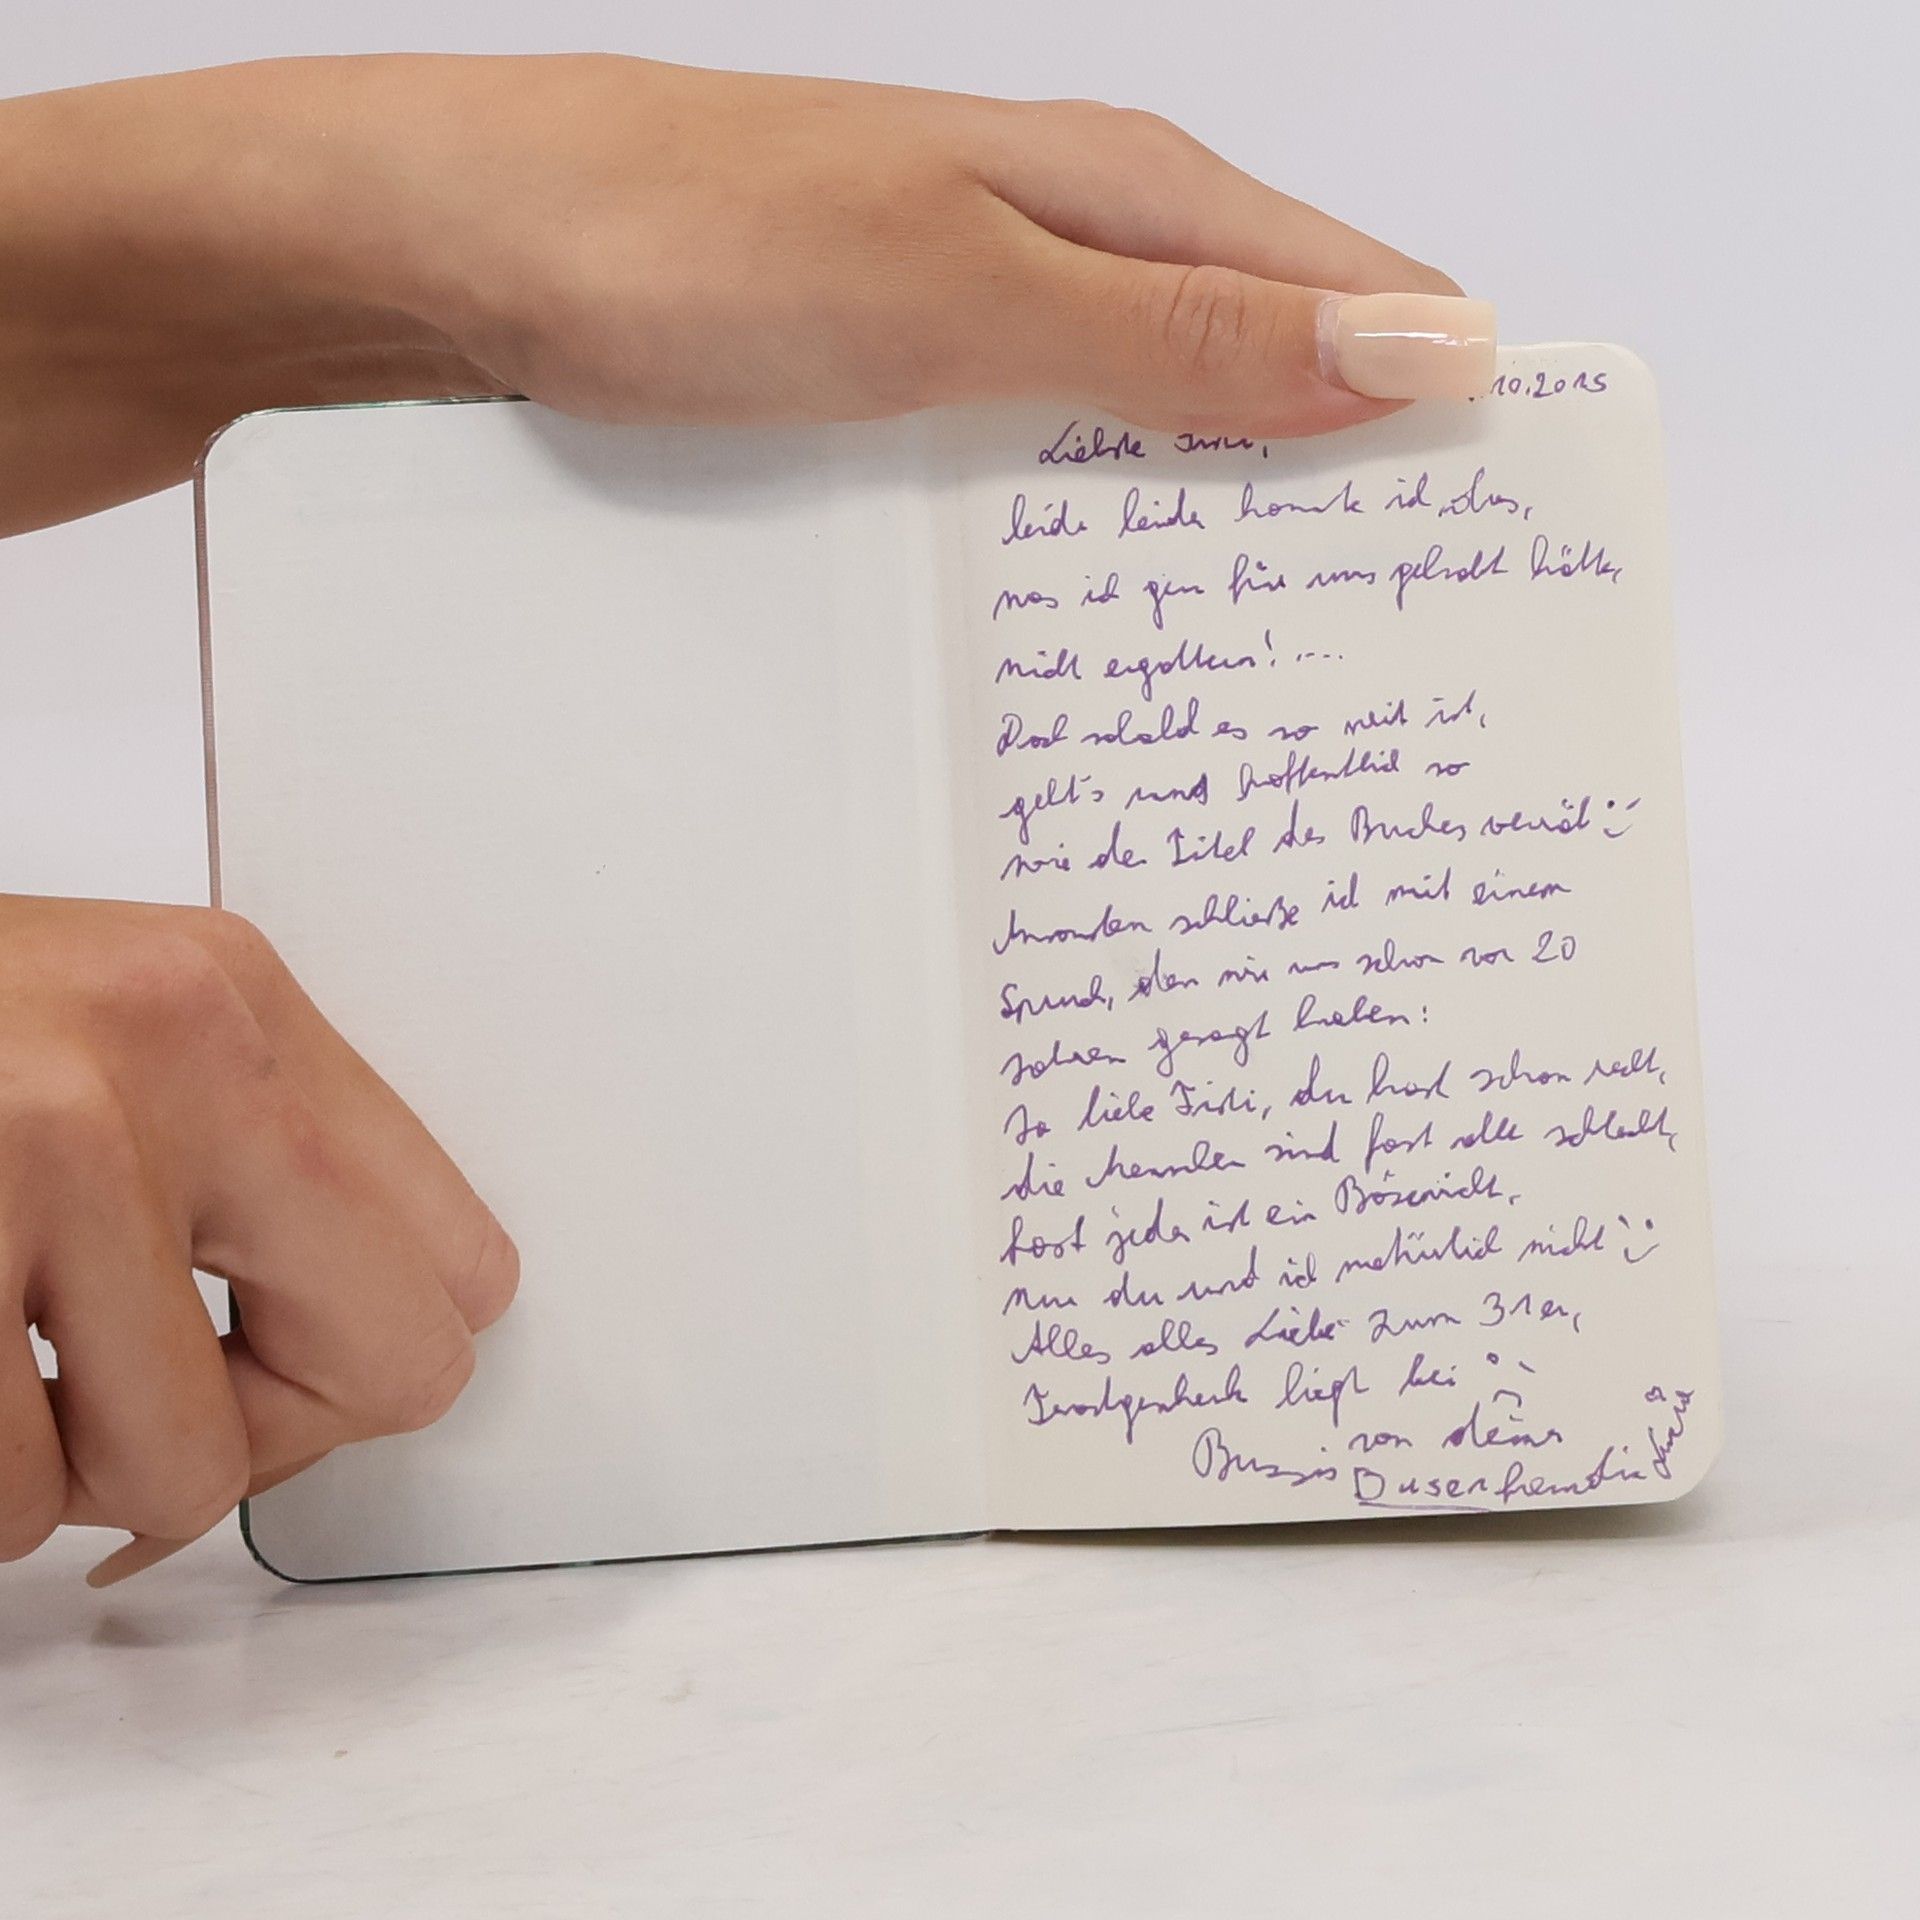 .10.2015
Liebste
leider leider konnte ich das,
was ich gern für uns gehabt hätte,
nicht ergattern! ....
Doch sobald es so weit ist,
geht's uns hoffentlich so
wie der Titel des Buches verrät :)
Ansonsten schließe ich mit einem
Spruch, den wir uns schon vor 20
Jahren gesagt haben:
Ja liebe du hast schon recht,
die Menschen sind fast alle schlecht,
fast jeder ist ein Bösewicht,
nur du und ich natürlich nicht :)
Alles alles Liebe zum 31er,
Trostgeschenk liegt bei :)
Bussis von deiner
Busenfreundin